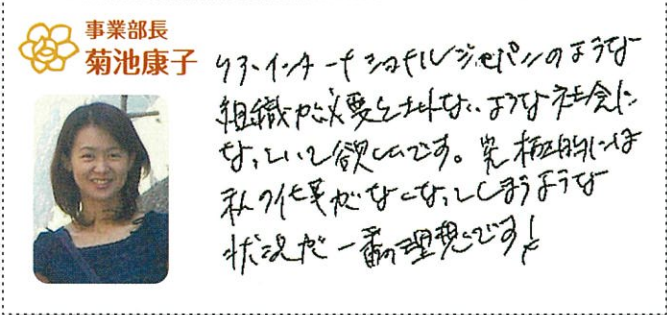 事業部長
菊池康子
ケア・インターナショナルジャパンのような
組織が必要とされないような社会に
なっていて欲しいです。究極的には
私の仕事がなくなってしまうような
状況が一番の理想です!